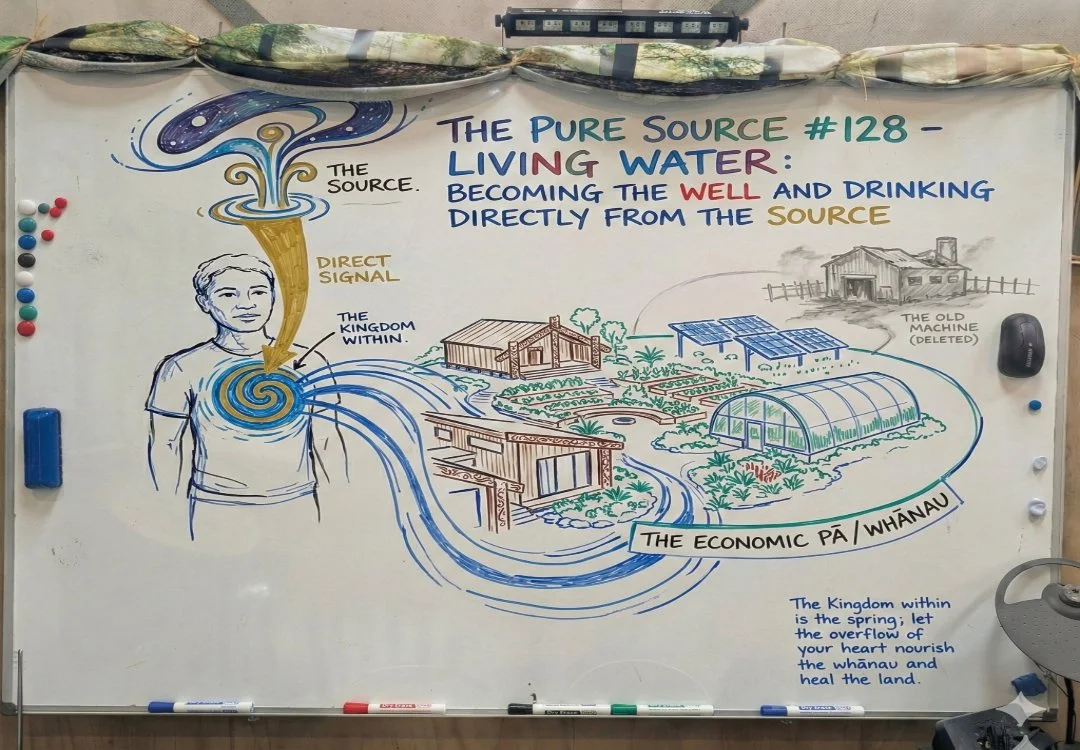 THE PURE SOURCE #128 –
LIVING WATER:
BECOMING THE WELL AND DRINKING
DIRECTLY FROM THE SOURCE
THE
SOURCE.
DIRECT
SIGNAL
THE
KINGDOM
WITHIN.
THE OLD
MACHINE
(DELETED)
THE ECONOMIC PĀ/WHĀNAU
The Kingdom within
is the spring; let
the overflow of
your heart nourish
the whānau and
heal the land.
Dry Erase